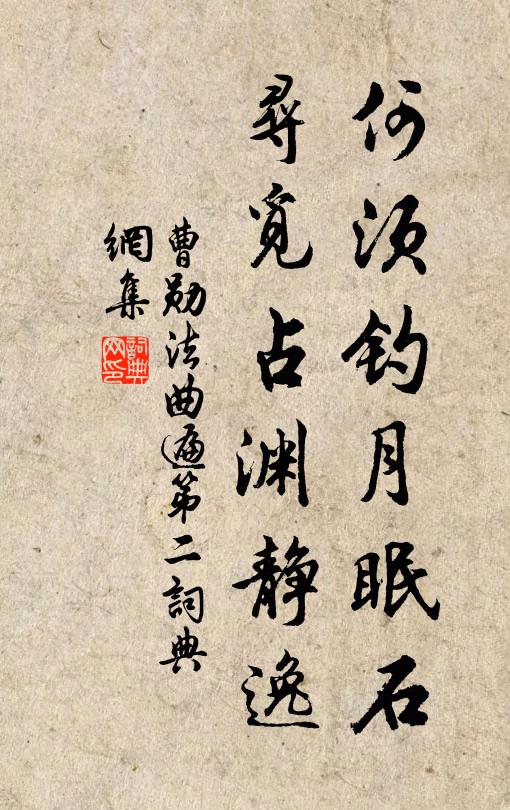 何须钓月眠石
寻觅占渊静逸
曹勋法曲遍第二词典
網集
詞典
网印